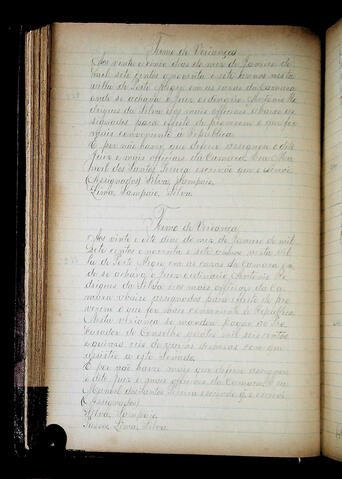 Termo de Verianças
Aos vinte e cinco dias do mez de Janeiro de
mil sete centos e noventa e sete annos nesta
villa de Porto Alegre em as casas da Camara
onde se achava o Juiz ordinario Antonio Ro
drigues da Silva e os mais officiaes abaixo as
signados para effeito de proverem o que for
mais conveniente a Republica.
E por não haver que deferir assignou o dito
Juiz e mais officiaes da Camara. Eu Ma
noel dos Santos escrivão que o escrevi
(Assignados) Silva, Sampaio,
Lima, Sampaio, Silva.
Termo de Veriança
Aos vinte e sete dias do mez de Janeiro de mil
sete centos e noventa e sete annos nesta Vil
la de Porto Alegre em as casas da Camara on
de se achava o Juiz ordinario Antonio Ro
drigues da Silva e os mais officiaes da Ca
mara abaixo assignados para effeito de pro
verem o que for mais conveniente a Republica.
Nesta veriança se mandou pagar ao Pro
curador do Conselho mil seis centos
e quinze reis de varias despezas com que
assistiu a este Senado.
E por não haver mais que deferir assignou
o dito Juiz e mais officiaes da Camara. Eu
Manoel dos Santos escrivão que o escrevi
(Assignados)
Silva, Sampaio,
Lima, Silva